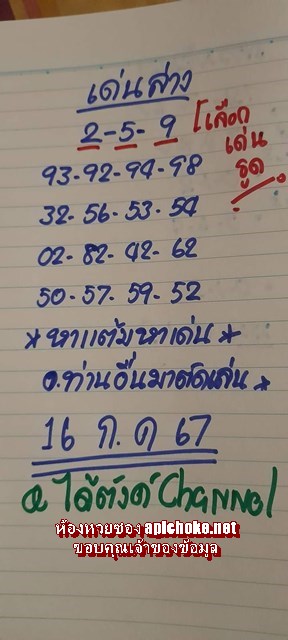 เด่นล่าง
2-5-9
[เลือก
เด่น
รูด
93-92-94-98
32-56-53-54
02-82-42-62
50-57-59-52
*หาแต้มหาเด่น*
อ.ท่านอื่นมาตัดเล่น*
16 ก.ค 67
Channel
ห้องหวยซอง apichoke.net
ขอบคุณเจ้าของข้อมูล